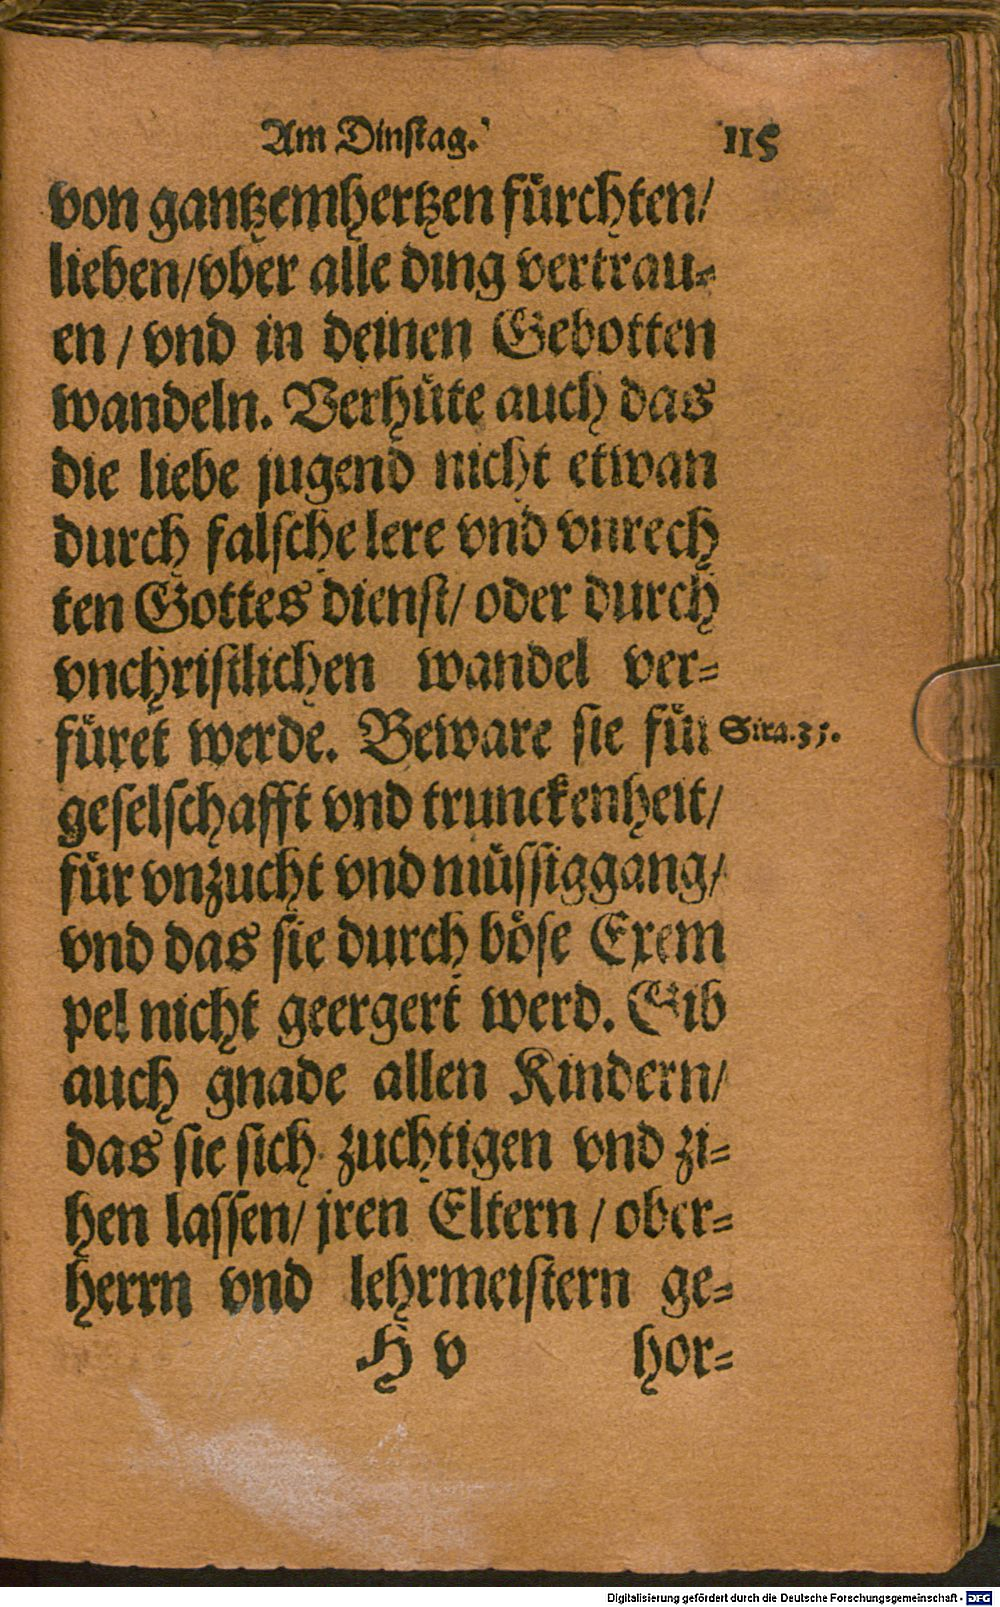 Am Dinstag. 115
von gantzem hertzen fürchten/
lieben/ vber alle ding vertrau-
en / vnd in deinen Gebotten
wandeln. Verhüte auch das
die liebe jugend nicht etwan
durch falsche lere vnd vnrech
ten Gottes dienst/ oder durch
vnchristlichen wandel ver-
füret werde. Beware sie für
geselschafft vnd trunckenheit/
für vnzucht vnd müssiggang/
vnd das sie durch böse Exem
pel nicht geergert werd. Gib
auch gnade allen Kindern/
das sie sich zuchtigen vnd zi-
hen lassen/ jren Eltern / ober-
herrn vnd lehrmeistern ge-
H v hor-
Sira.
Digitalisierung gefördert durch die Deutsche Forschungsgemeinschaft - DFG